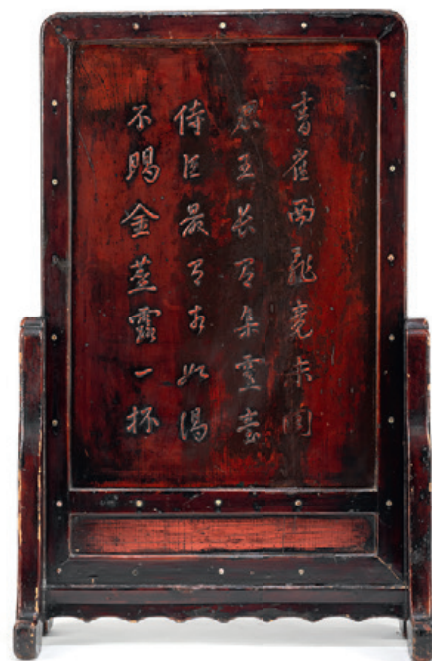 青雀西飛竟未回
君王長在集靈臺
侍臣最有相如渴
不賜金莖露一杯